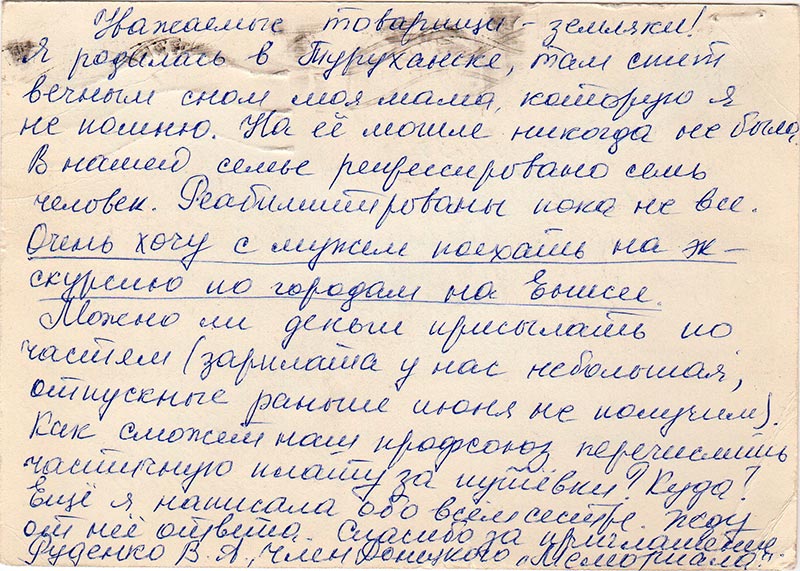 Уважаемые товарищи - земляки!
Я родилась в Туруханске, там спит
вечным сном моя мама, которую я
не помню. На её могиле никогда не была.
В нашей семье репрессировано семь
человек. Реабилитированы пока не все.
Очень хочу с мужем поехать на эк-
скурсию по городам на Енисее.
Можно ли деньги присылать по
частям (зарплата у нас небольшая,
отпускные раньше июня не получим).
Как сможет наш профсоюз перечислить
частичную плату за путёвки? Куда?
Ещё я написала обо всем сестре. Жду
от неё ответа. Спасибо за приглашение.
Руденко В. А., член Донецкого „Мемориала".